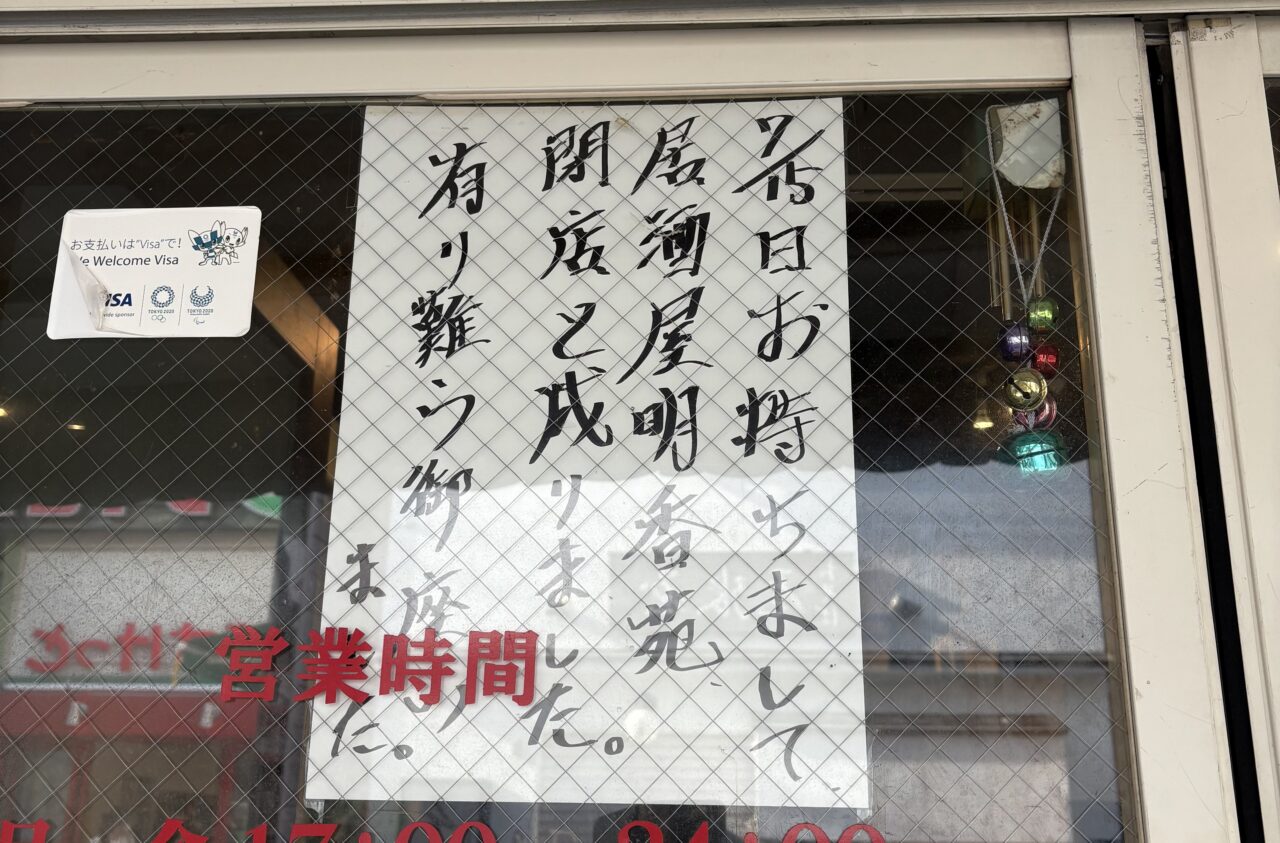 7/15日お持ちまして
居酒屋明香苑、
閉店と成りました。
有り難う御座い
ました。
お支払いは"Visa"で!
We Welcome Visa
VISA
TOKYO 2020
TOKYO 2020
営業時間
金 17:00